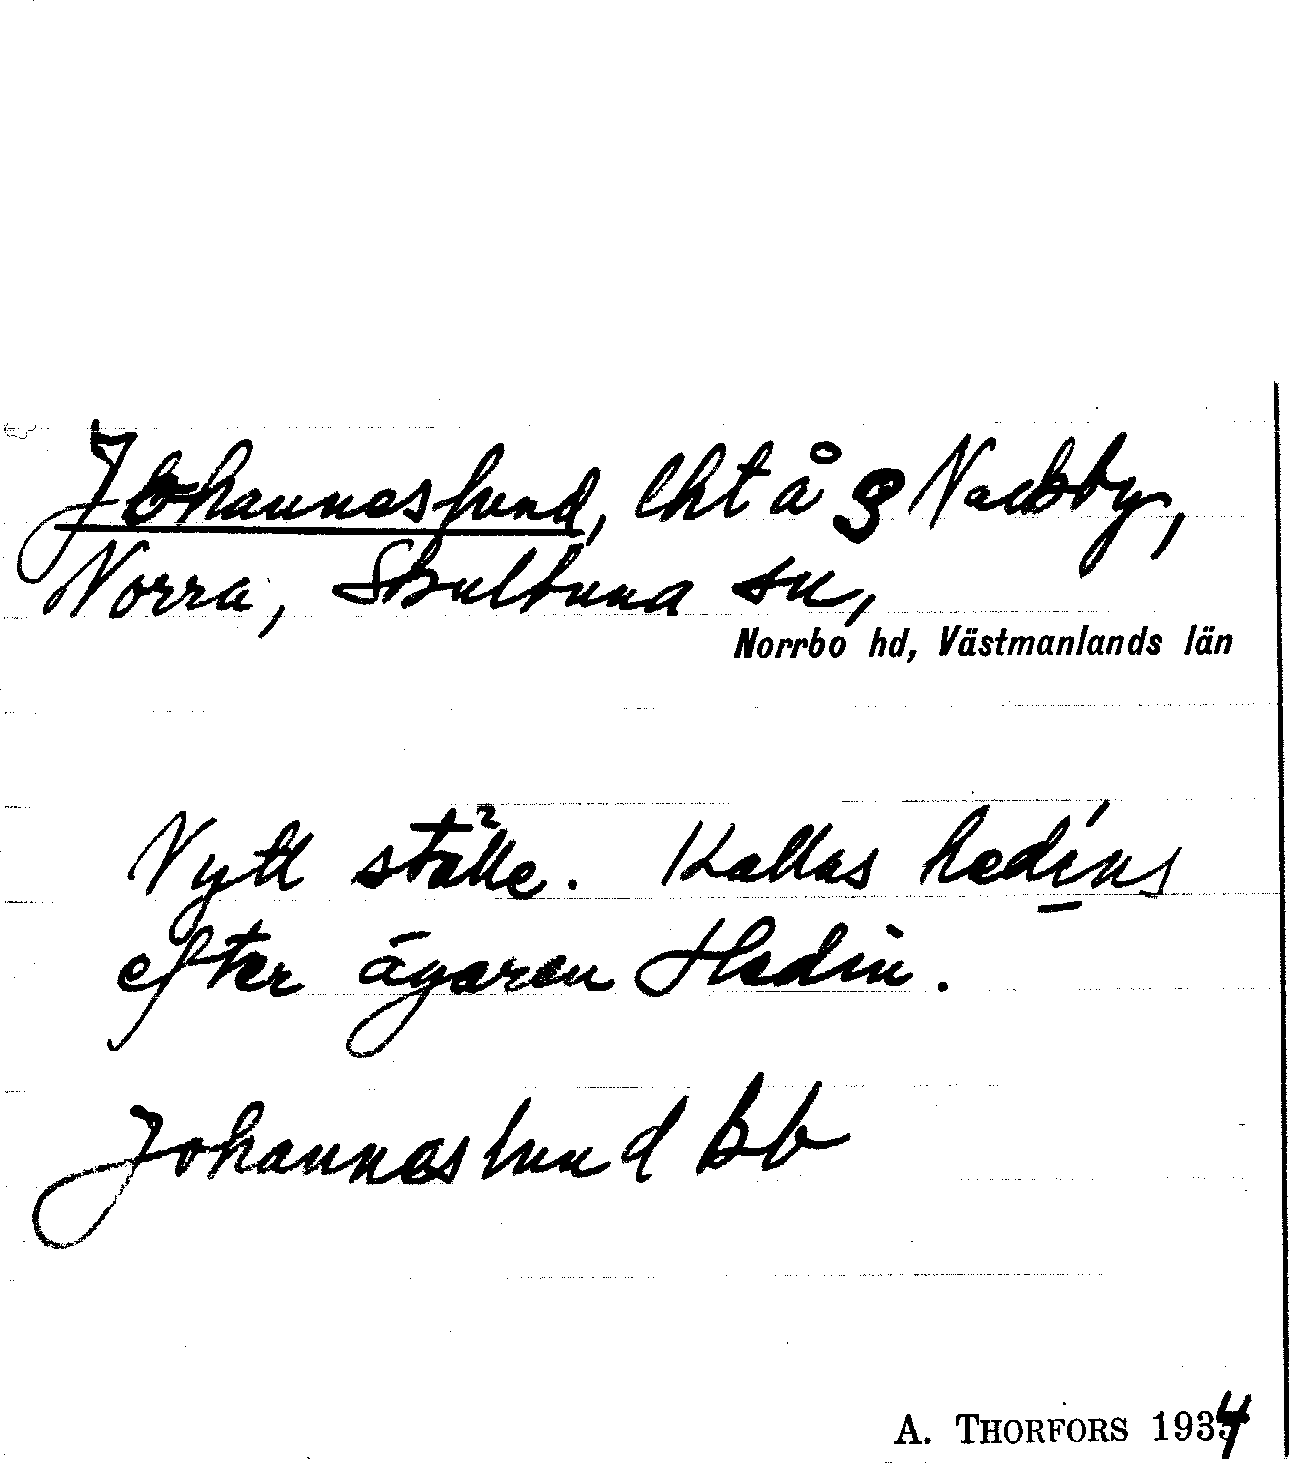 Johanneslund, lht å 3 Nackby,
Norra, Skultuna sn,
Norrbo hd, Västmanlands län
Nytt ställe. Kallas hedíns
efter ägaren Hedin.
Johanneslund Bb
A. THORFORS 1934